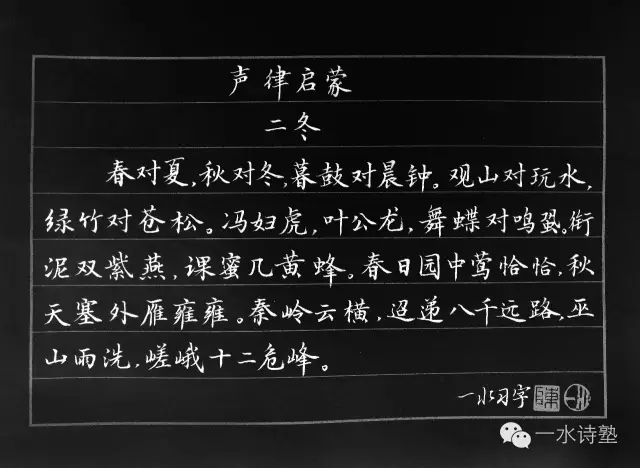 声律启蒙
二冬
春对夏,秋对冬,暮鼓对晨钟。观山对玩水,
绿竹对苍松。冯妇虎,叶公龙,舞蝶对鸣蛩。衔
泥双紫燕,课蜜几黄蜂。春日园中莺恰恰,秋
天塞外雁雍雍。秦岭云横,迢递八千远路,巫
山雨洗,嵯峨十二危峰。
一水习字
一水诗塾